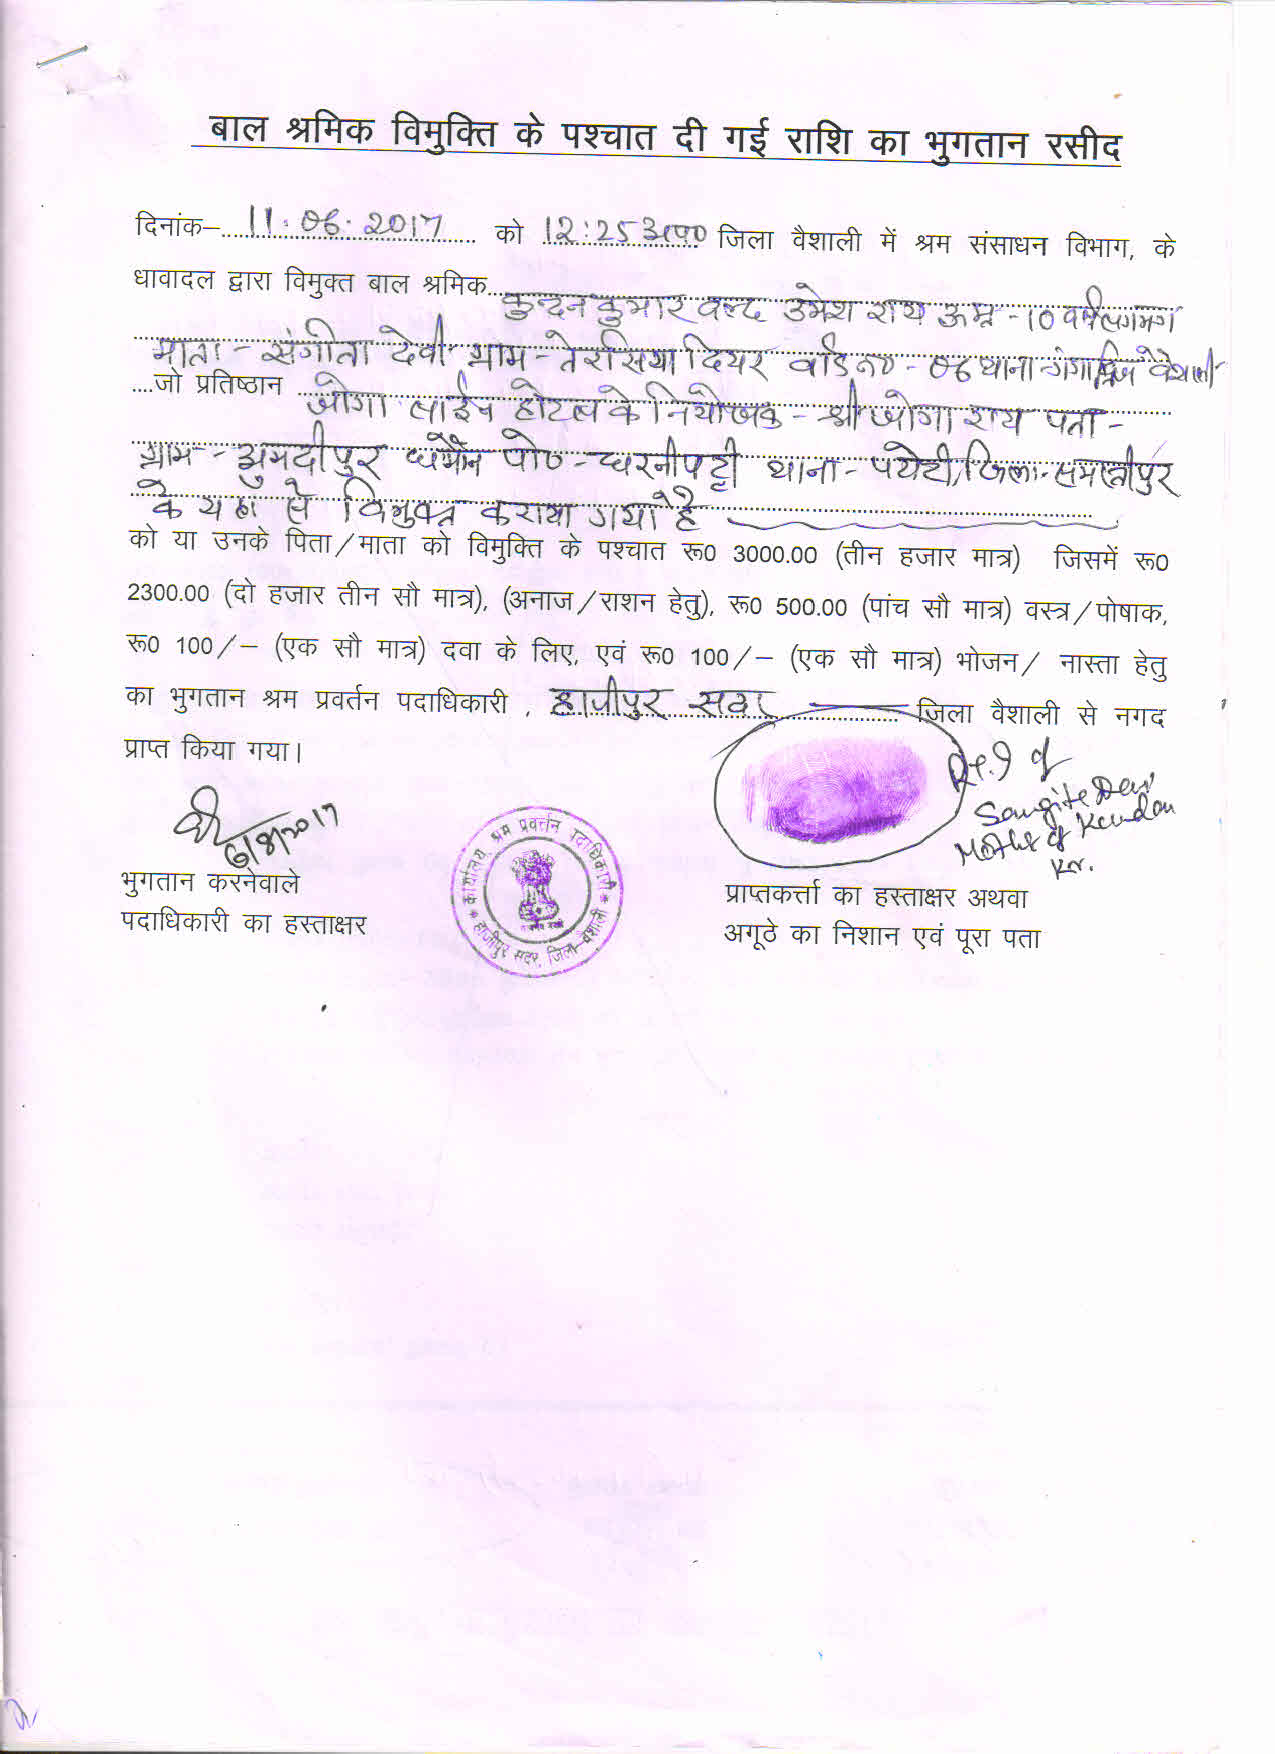 बाल श्रमिक विमुक्ति के पश्चात दी गई राशि का भुगतान रसीद
दिनांक–....11.06.2017.... को 12:25 अप0 जिला वैशाली में श्रम संसाधन विभाग, के
धावादल द्वारा विमुक्त बाल श्रमिक... कुन्दन कुमार वल्द उमेश राय उम्र - 10 वर्ष लगभग
माता - संगीता देवी ग्राम - तेरसिया दियर वार्ड न0 - 06 थाना गंगाब्रिज वैशाली
....जो प्रतिष्ठान जोगा लाईन होटल के नियोजक - श्री जोगा राय पता -
ग्राम - अमदीपुर धमौन पो0 - धरनीपट्टी थाना - पटोरी, जिला - समस्तीपुर
के यहां से विमुक्त कराया गया है
को या उनके पिता/माता को विमुक्ति के पश्चात रू0 3000.00 (तीन हजार मात्र) जिसमें रू0
2300.00 (दो हजार तीन सौ मात्र), (अनाज/राशन हेतु), रू0 500.00 (पांच सौ मात्र) वस्त्र/पोषाक,
रू0 100/– (एक सौ मात्र) दवा के लिए, एवं रू0 100/– (एक सौ मात्र) भोजन/ नास्ता हेतु
का भुगतान श्रम प्रवर्तन पदाधिकारी , हाजीपुर सदर जिला वैशाली से नगद
प्राप्त किया गया।
Rt.I of
Sangita Devi
Mother of Kundan
Kr.
2017
कार्यालय श्रम प्रवर्त्तन पदाधिकारी
हाजीपुर सदर, जिला–वैशाली
भुगतान करनेवाले
पदाधिकारी का हस्ताक्षर
प्राप्तकर्त्ता का हस्ताक्षर अथवा
अगूठे का निशान एवं पूरा पता